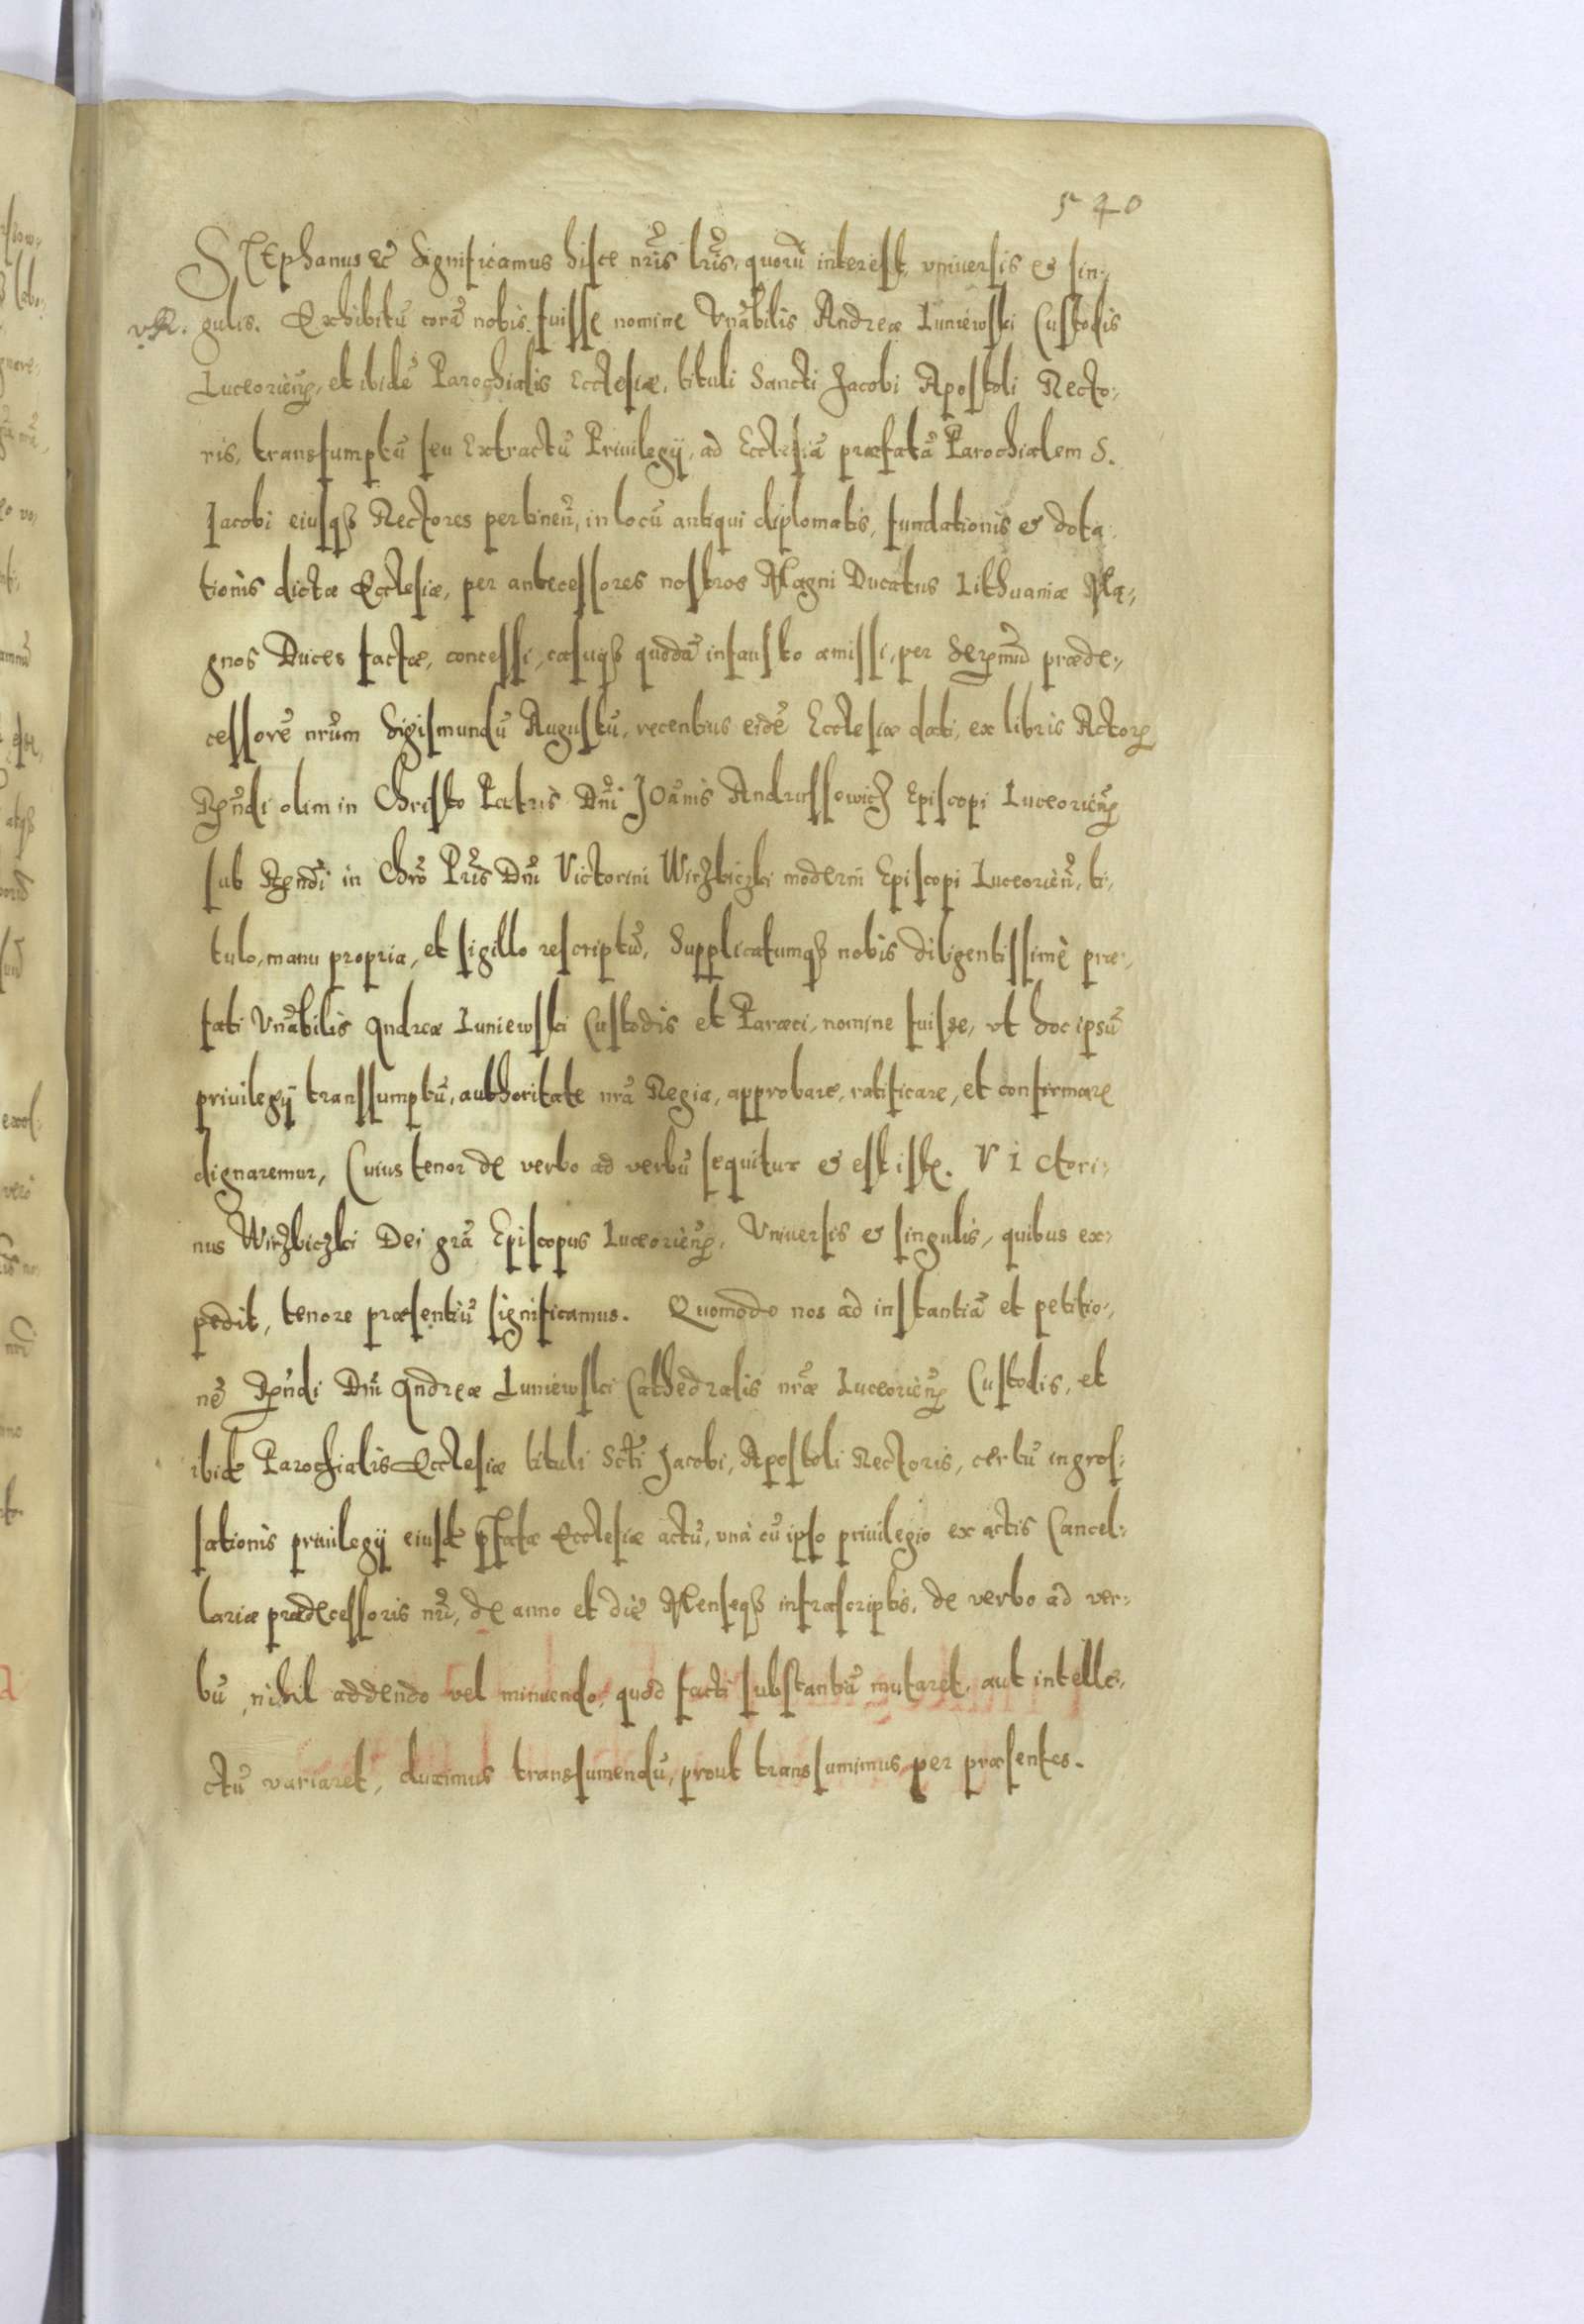 540
STEphanus &c Significamus hisce nr̃is lr̃is, quorũ interest, vniuersis & sin-
gulis. Exhibitũ corã nobis fuisse nomine Vnãbilis Andreæ Iuniewski Custodis
Luceorieñ, et ibidẽ Parochialis Ecclesiæ, tituli Sancti Jacobi Apostoli Recto-
ris, transsumptũ seu Extractũ Priuilegij, ad Ecclesiã præfatã Parochialem S.
Jacobi eiusq3 Rectores pertineñ, in locũ antiqui diplomatis, fundationis & dota-
tionis dictæ Ecclesiæ, per antecessores nostros Magni Ducatus Lithuaniæ Ma-
gnos Duces factæ, concessi, casuq3 quodã infausto amissi, per Serm̃ũ præde-
cessorẽ nr̃um Sigismundũ Augustũ, recentius eidẽ Ecclesiæ dati, ex libris Actorꝝ
Rñdi olim in Christo Patris Dñi JOãnis Andrussewicz Episcopi Luceorieñ
sub Rendi in Chrõ Pr̃is Dñi Victorini Wirzbiczki moderni Episcopi Luceorieñ, ti-
tulo, manu propria, et sigillo rescriptũ, Supplicatumq3 nobis diligentissimè præ-
fati Vnãbilis Andreæ Luniewski Custodis et Paræci, nomine fuisse, vt hoc ipsũ
priuilegij transsumptũ, authoritate nr̃a Regia, approbare, ratificare, et confirmare
dignaremur, Cuius tenor de verbo ad verbũ sequitur & est iste. VIctori-
nus Wirzbiczki Dei grã Episcopus Luceorieñ, Vniuersis & singulis, quibus ex-
pedit, tenore præsentiũ significamus. Quomodo nos ad instantiã et petitio-
nẽ Rñdi Dñi Andreæ Luniewski Cathedralis nr̃æ Luceorieñ Custodis, et
ibidẽ Parochialis Ecclesiæ tituli Scti Jacobi, Apostoli Rectoris, certũ ingros-
sationis priuilegij eiusdẽ pfatæ Ecclesiæ actũ, vnà cũ ipso priuilegio ex actis Cancel-
lariæ prædecessoris nr̃i, de anno et die Menseq3 infrascriptis, de verbo ad ver-
bũ, nihil addendo vel minuendo, quod facti substantiã mutaret, aut intelle-
ctũ variaret, duximus transsumendũ, prout transsumimus per præsentes.